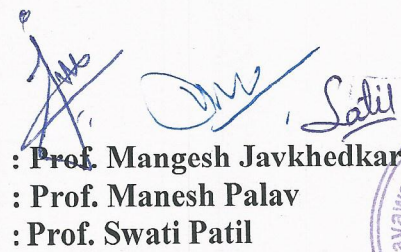 : Prof. Mangesh Javkhedkar
: Prof. Manesh Palav
: Prof. Swati Patil